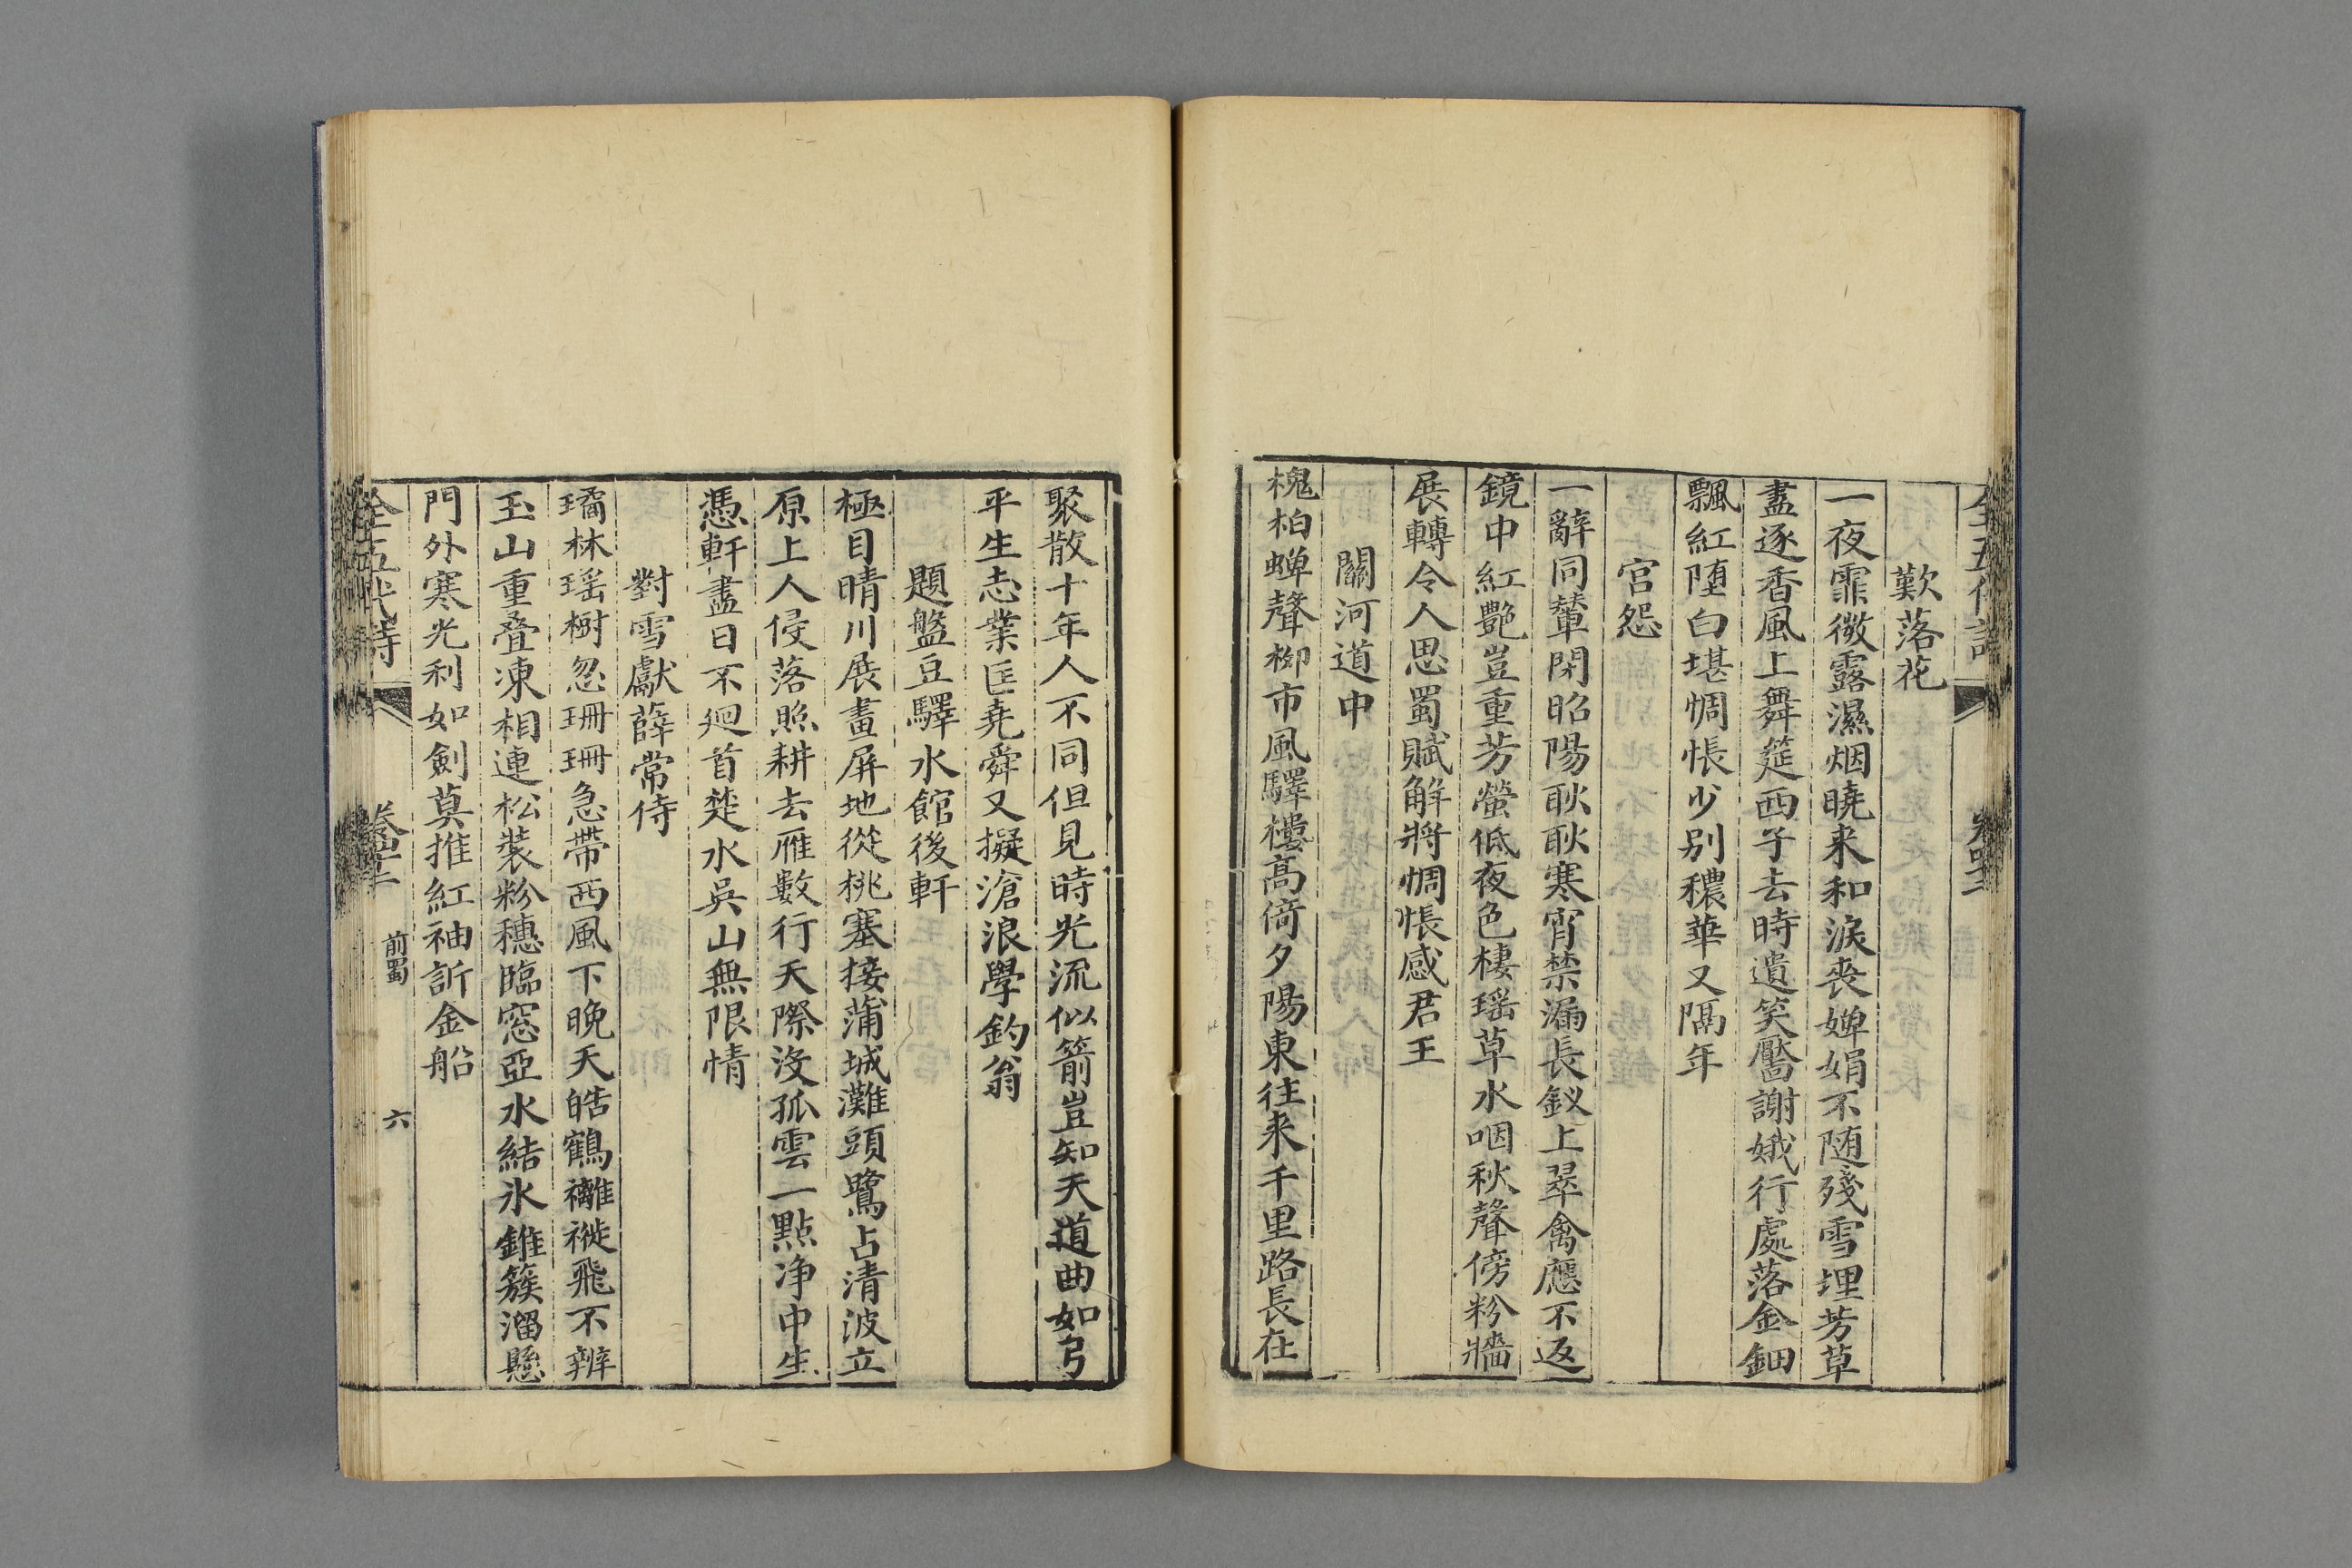 歎落花
一夜霏微露濕烟曉来和淚喪嬋娟不随殘雪埋芳草
盡逐香風上舞筵西子去時遺笑靨謝娥行處落金鈿
飄紅堕白堪惆悵少別穠華又隔年
宫怨
一辭同輦閉昭陽耿耿寒宵禁漏長釵上翠禽應不返
鏡中紅艷豈重芳螢低夜色棲瑶草水咽秋聲傍粉牆
展轉令人思蜀賦解將惆悵感君王
關河道中
槐柏蟬聲栁市風驛樓高倚夕陽東往来千里路長在
聚散十年人不同但見時光流似箭豈知天道曲如弓
平生志業匡堯舜又擬滄浪學釣翁
題盤豆驛水館後軒
極目晴川展畫屏地從桃塞接蒲城灘頭鷺占清波立
原上人侵落照耕去雁數行天際没孤雲一點净中生
憑軒盡日不廻首楚水吳山無限情
對雪獻薛常侍
璚林瑶樹忽珊珊急帶西風下晚天皓鶴襹褷飛不辨
玉山重叠凍相連松裝粉穗臨窓亞水結氷錐簇溜懸
門外寒光利如劍莫推紅袖訴金船
全五代詩 前蜀 六